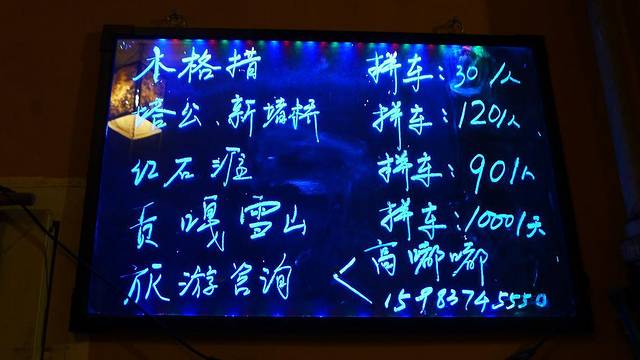 木格措 拼车:30/人
塔公、新堵桥 拼车:120/人
红石滩 拼车:90/人
贡嘎雪山 拼车:1000/天
旅游咨询 < 高嘟嘟
15983745550